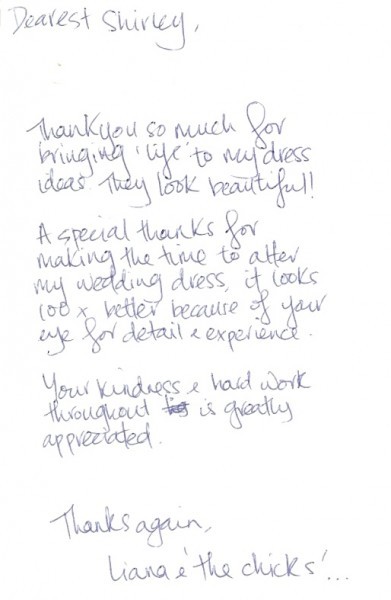 Dearest Shirley,
Thankyou so much for
bringing 'life' to my dress
ideas. They look beautiful!
A special thanks for
making the time to alter
my wedding dress, it looks
100 x better because of your
eye for detail & experience.
Your kindness & hard work
throughout is greatly
appreciated.
Thanks again,
Liana & 'the chicks'...